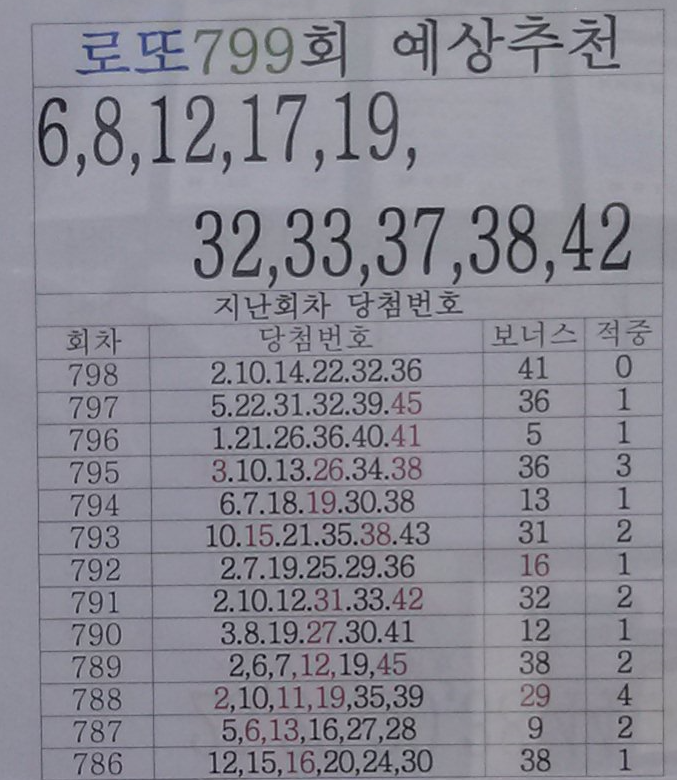 로또799회 예상추천
6,8,12,17,19,
32,33,37,38,42
지난회차 당첨번호
회차 당첨번호 보너스 적중
798 2.10.14.22.32.36 41 0
797 5.22.31.32.39.45 36 1
796 1.21.26.36.40.41 5 1
795 3.10.13.26.34.38 36 3
794 6.7.18.19.30.38 13 1
793 10.15.21.35.38.43 31 2
792 2.7.19.25.29.36 16 1
791 2.10.12.31.33.42 32 2
790 3.8.19.27.30.41 12 1
789 2,6,7,12,19,45 38 2
788 2,10,11,19,35,39 29 4
787 5,6,13,16,27,28 9 2
786 12,15,16,20,24,30 38 1